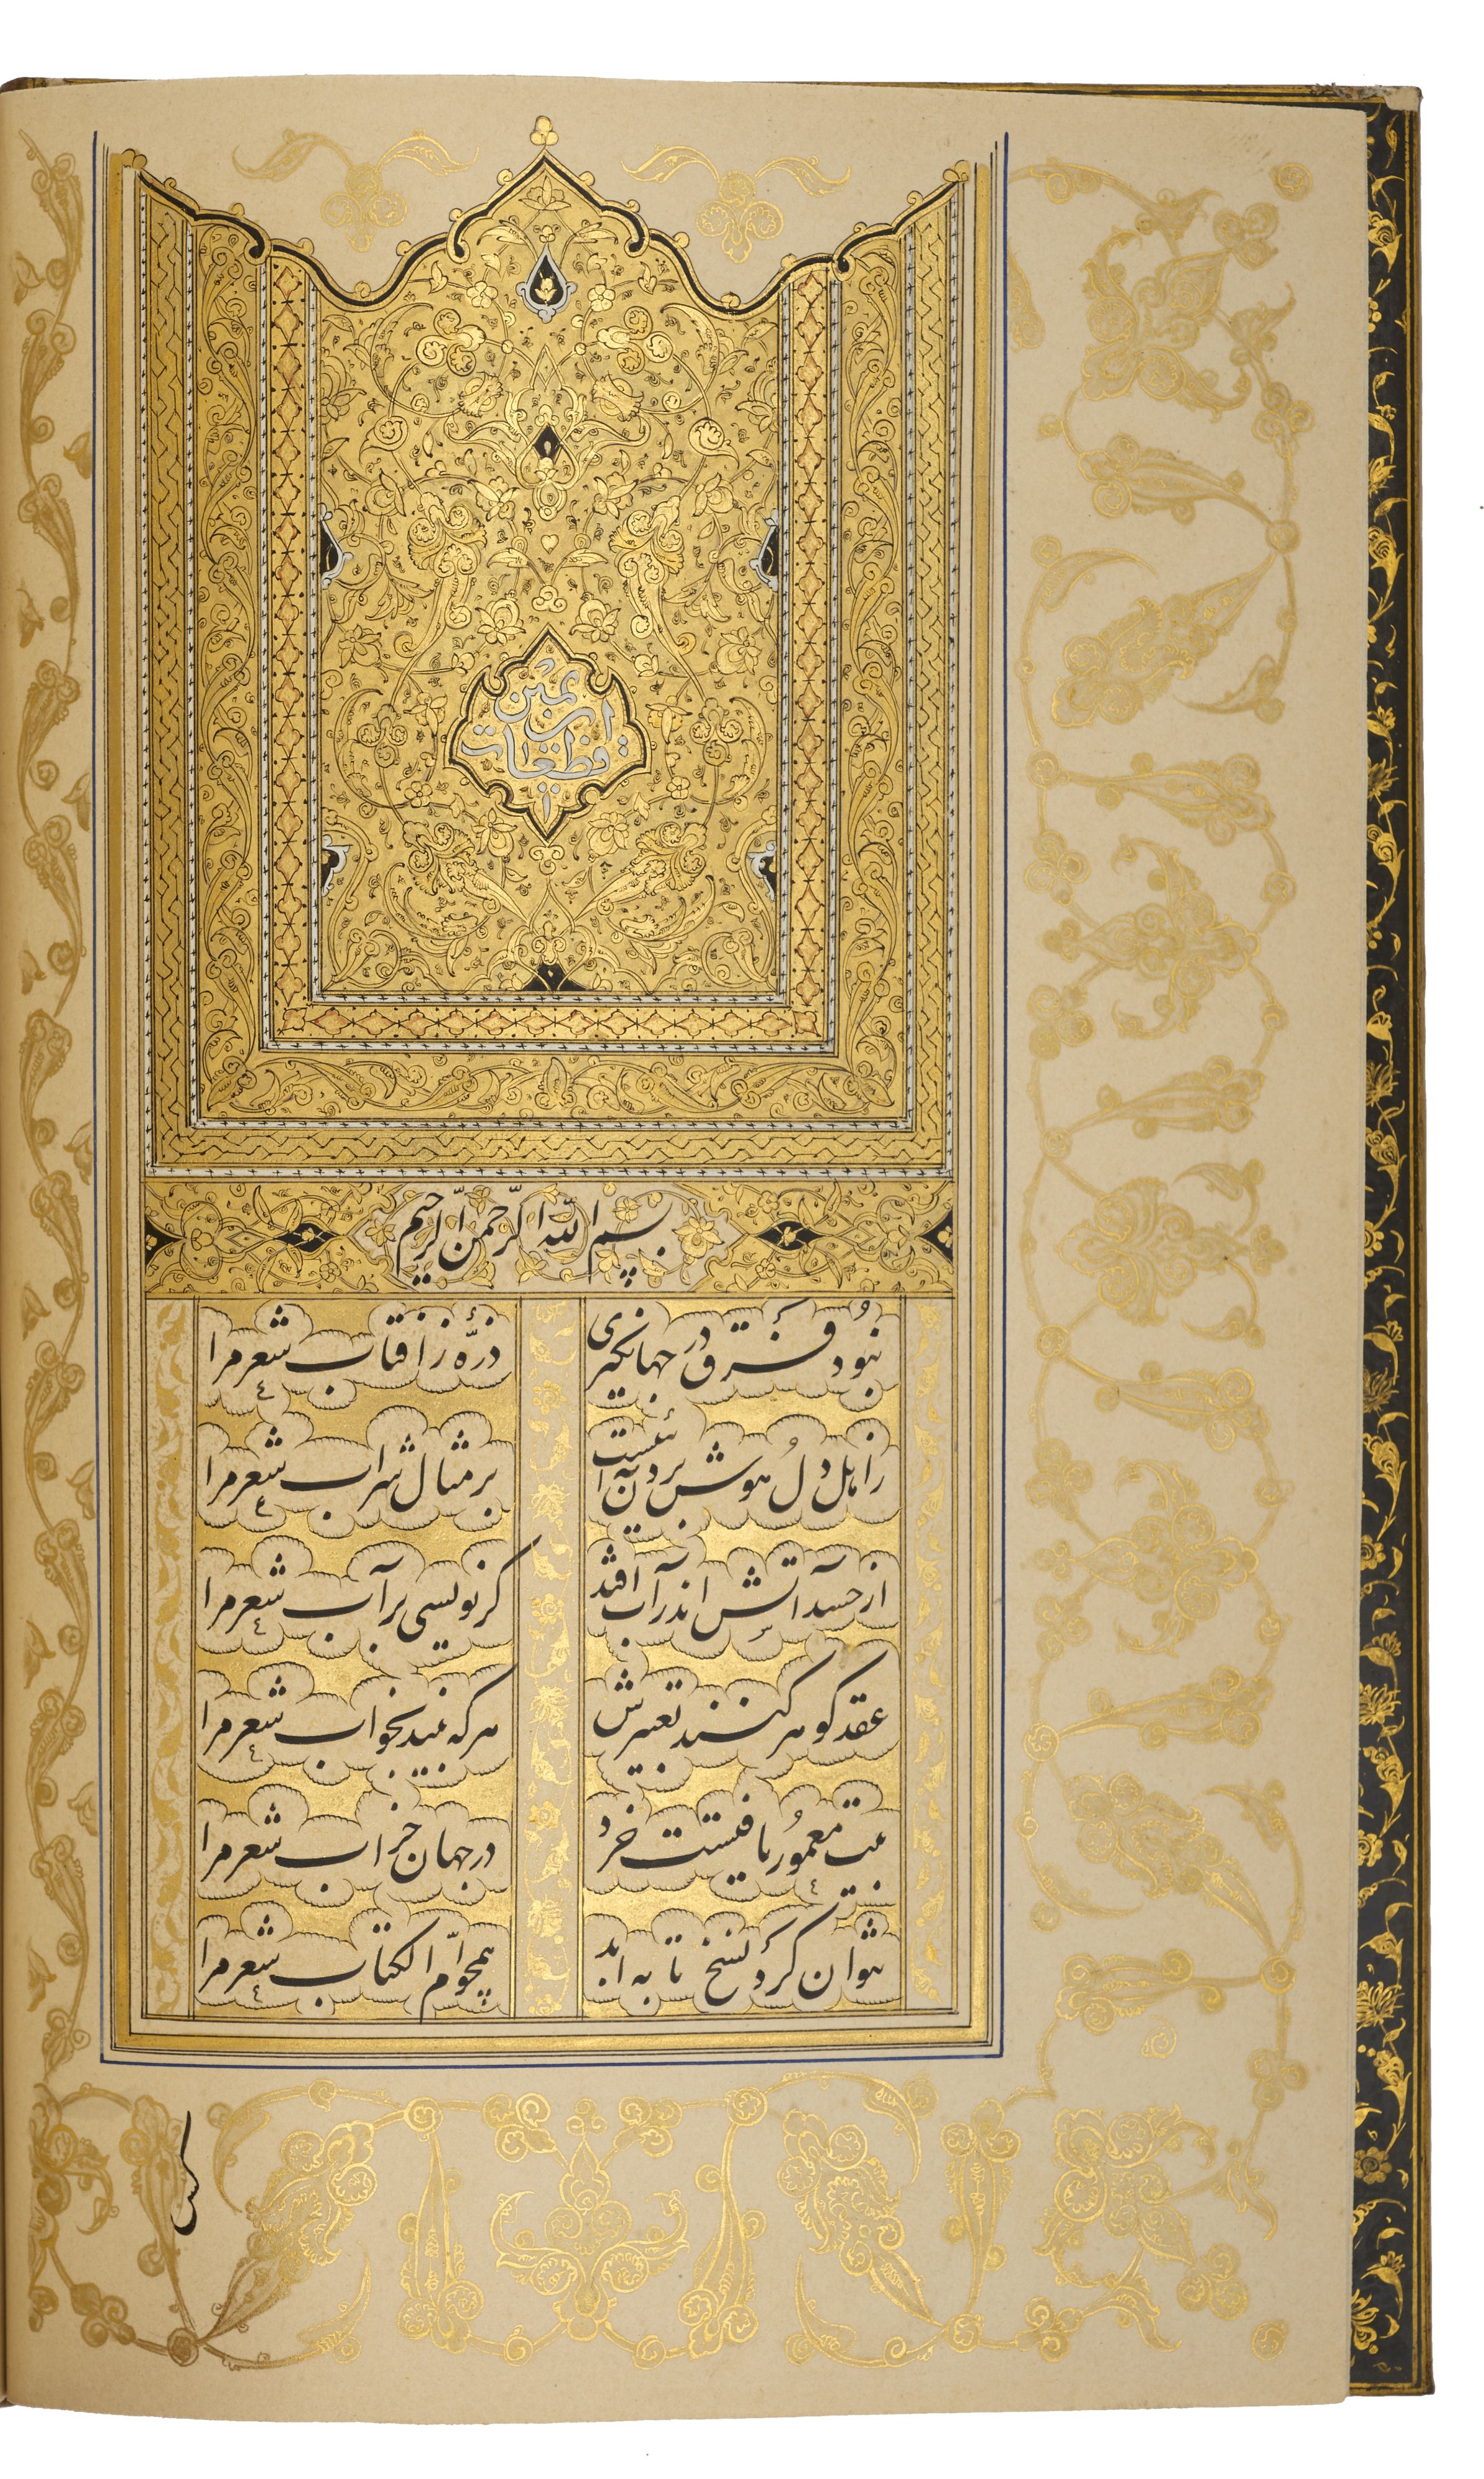 قطعات ابن یمین
بسم الله الرحمن الرحیم
نبود فرق در جهانگیری ذرّه ز افتاب شعر مرا
ز اهل دل هوش بردنه است بر مثال شراب شعر مرا
از حسد آتش اندر آب افتد کر نویسی بر آب شعر مرا
عقد کوهر کنند تعبیرش هر که بیند بخواب شعر مرا
بیت معمور یافتست خرد در جهان خراب شعر مرا
نتوان کرد نسخ تا به ابد همچو امّ الکتاب شعر مرا